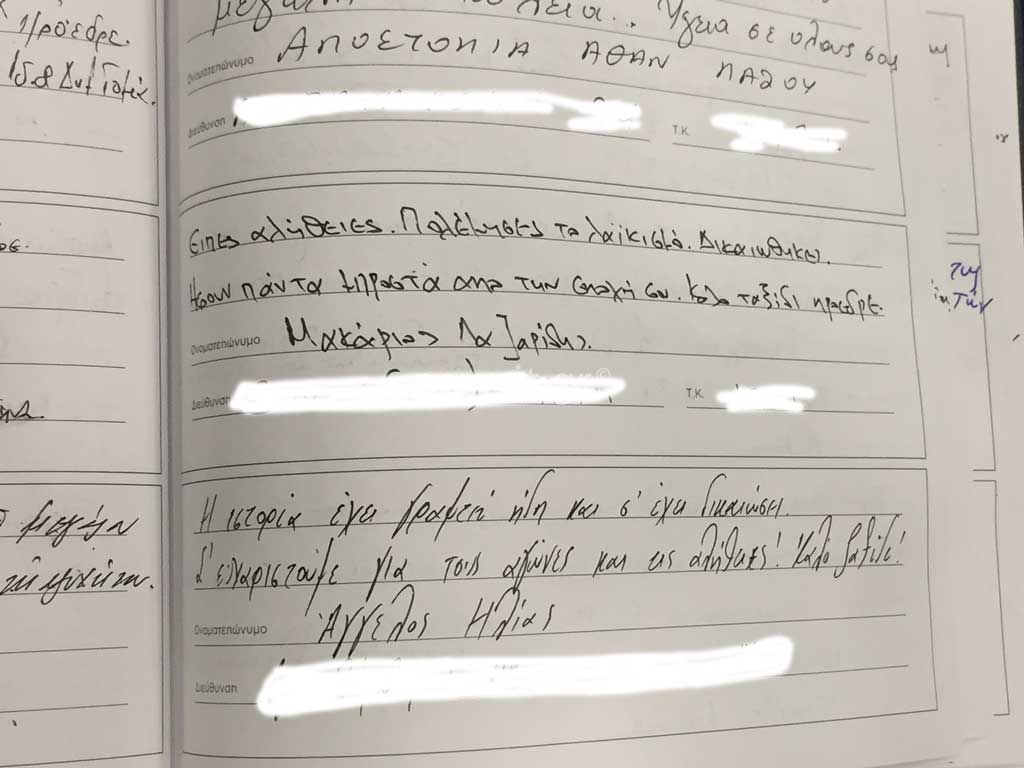 Πρόεδρε.
Υγεια σε ολους σας
Ονοματεπώνυμο ΑΠΟΣΤΟΛΙΑ ΑΘΑΝ ΠΑΖΟΥ
Διεύθυνση Τ.Κ.
Ειπες αλήθειες. Πολέμησες το λαϊκισμό. Δικαιωθηκες.
Ησουν πάντα μπροστά απο την εποχή σου. Καλο ταξίδι προεδρε.
Ονοματεπώνυμο Μακάριος Λαζαρίδης.
Διεύθυνση Τ.Κ.
Η ιστορία έχει γραφτεί ήδη και σ' έχει δικαιώσει.
Σ' ευχαριστούμε για τους αγώνες και τις αλήθειες! Καλό ταξίδι!
Ονοματεπώνυμο Άγγελος Ηλίας
Διεύθυνση